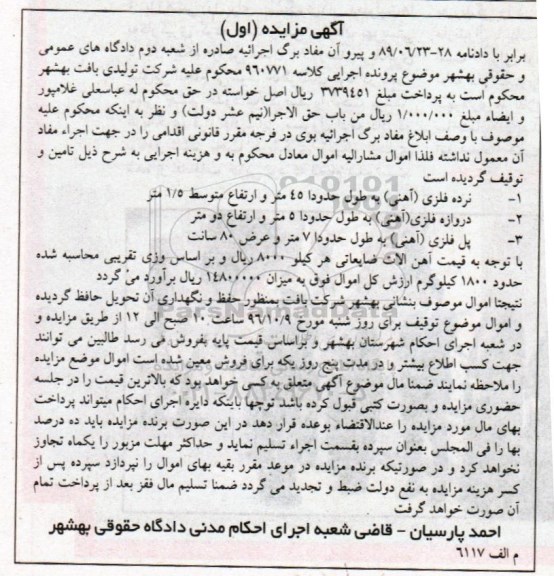 آگهی مزایده (اول)
برابر با دادنامه ۲۸-۸۹/۰۶/۲۳ و پیرو آن مفاد برگ اجرائیه صادره از شعبه دوم دادگاه های عمومی
و حقوقی بهشهر موضوع پرونده اجرایی کلاسه ۹۶۰۷۷۱ محکوم علیه شرکت تولیدی بافت بهشهر
محکوم است به پرداخت مبلغ ۳۷۳۹٤۵۱ ریال اصل خواسته در حق محکوم له عباسعلی غلامپور
و ایضاء مبلغ ۱/۰۰۰/۰۰۰ ریال من باب حق الاجرا(نیم عشر دولت) و نظر به اینکه محکوم علیه
موصوف با وصف ابلاغ مفاد برگ اجرائیه بوی در فرجه مقرر قانونی اقدامی را در جهت اجراء مفاد
آن معمول نداشته فلذا اموال مشارالیه اموال معادل محکوم به و هزینه اجرایی به شرح ذیل تامین و
توقیف گردیده است
۱- نرده فلزی (آهنی) به طول حدودا ٤۵ متر و ارتفاع متوسط ۱/۵ متر
۲- دروازه فلزی(آهنی) به طول حدودا ۵ متر و ارتفاع دو متر
۳- پل فلزی (آهنی) به طول حدودا ۷ متر و عرض ۸۰ سانت
با توجه به قیمت آهن الات ضایعاتی هر کیلو ۸۰۰۰ ریال و بر اساس وزی تقریبی محاسبه شده
حدود ۱۸۰۰ کیلوگرم ارزش کل اموال فوق به میزان ۱٤۸۰۰۰۰۰ ریال برآورد می گردد
نتیجتا اموال موصوف بنشانی بهشهر شرکت بافت بمنظور حفظ و نگهداری آن تحویل حافظ گردیده
و اموال موضوع توقیف برای روز شنبه مورخ ۹٦/۱۰/۹ ساعت ۱۰ صبح الی ۱۲ از طریق مزایده و
در شعبه اجرای احکام شهرستان بهشهر و براساس قیمت پایه بفروش می رسد طالبین می توانند
جهت کسب اطلاع بیشتر و در مدت پنج روز یکه برای فروش معین شده است اموال موضع مزایده
را ملاحظه نمایند ضمنا مال موضوع آگهی متعلق به کسی خواهد بود که بالاترین قیمت را در جلسه
حضوری مزایده و بصورت کتبی قبول کرده باشد توجها باینکه دایره اجرای احکام میتواند پرداخت
بهای مال مورد مزایده را عندالاقتضاء بوعده قرار دهد در این صورت برنده مزایده باید ده درصد
بها را فی المجلس بعنوان سپرده بقسمت اجراء تسلیم نماید و حداکثر مهلت مزبور را یکماه تجاوز
نخواهد کرد و در صورتیکه برنده مزایده در موعد مقرر بقیه بهای اموال را نپردازد سپرده پس از
کسر هزینه مزایده به نفع دولت ضبط و تجدید می گردد ضمنا تسلیم مال فقز بعد از پرداخت تمام
آن صورت خواهد گرفت
احمد پارسیان - قاضی شعبه اجرای احکام مدنی دادگاه حقوقی بهشهر
م الف ٦۱۱۷
ParsNamadData